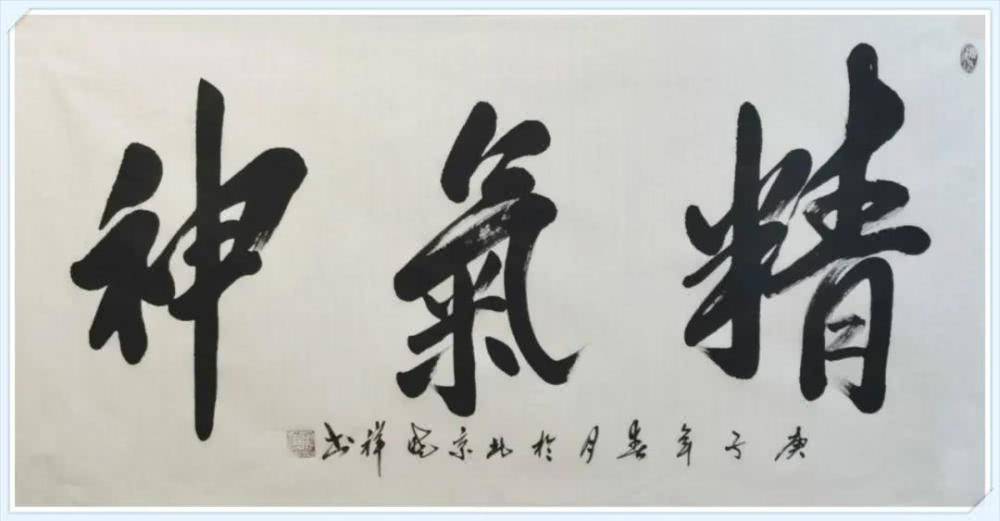 精氣神
庚子年春月於北京晓祥书